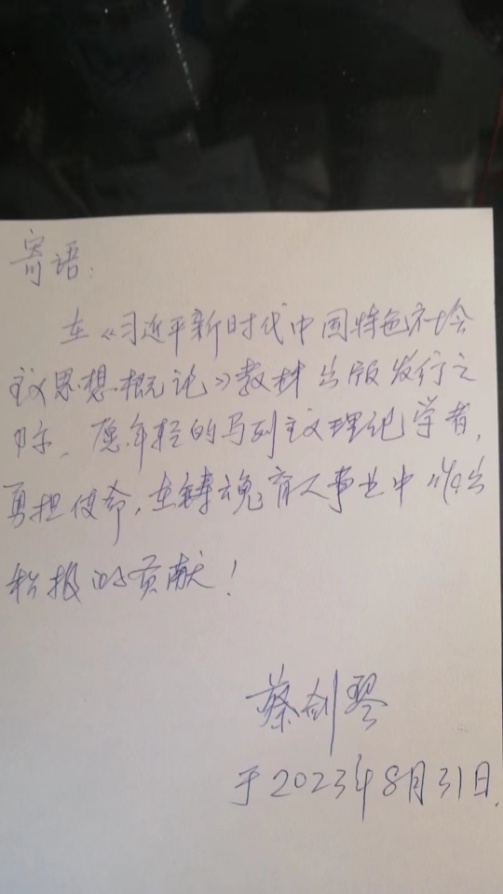 寄语:
在《习近平新时代中国特色社会
主义思想概论》教材出版发行之
际、愿年轻的马列主义理论学者,
勇担使命,在铸魂育人事业中作出
积极的贡献!
蔡剑琴
于2023年8月31日.